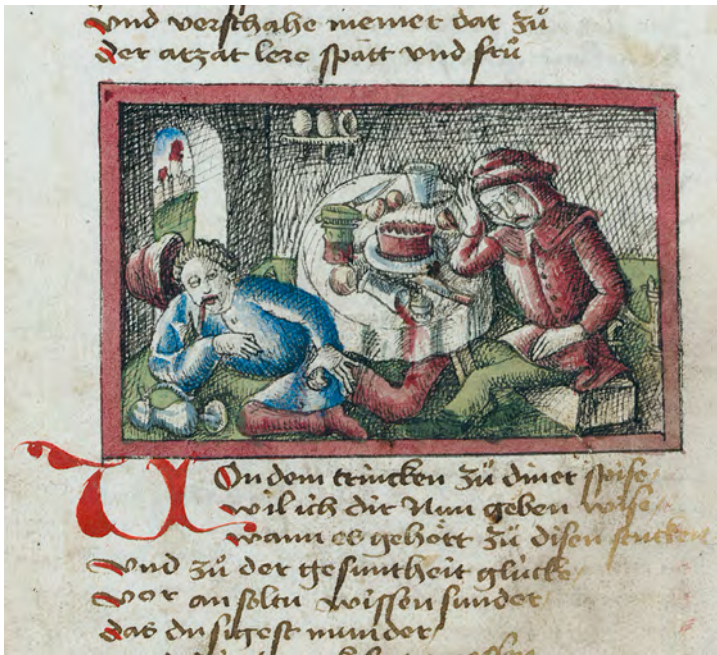 vnd verschahe meiner dar zů
der artzat lere spätt vnd frů
Von dem trincken zů diner spise
wil ich dir Nun geben wise
wann es gehört zů disen stucken
vnd zů der gesuntheit glücke
vor an soltu wissen sunder
das du sigest munder